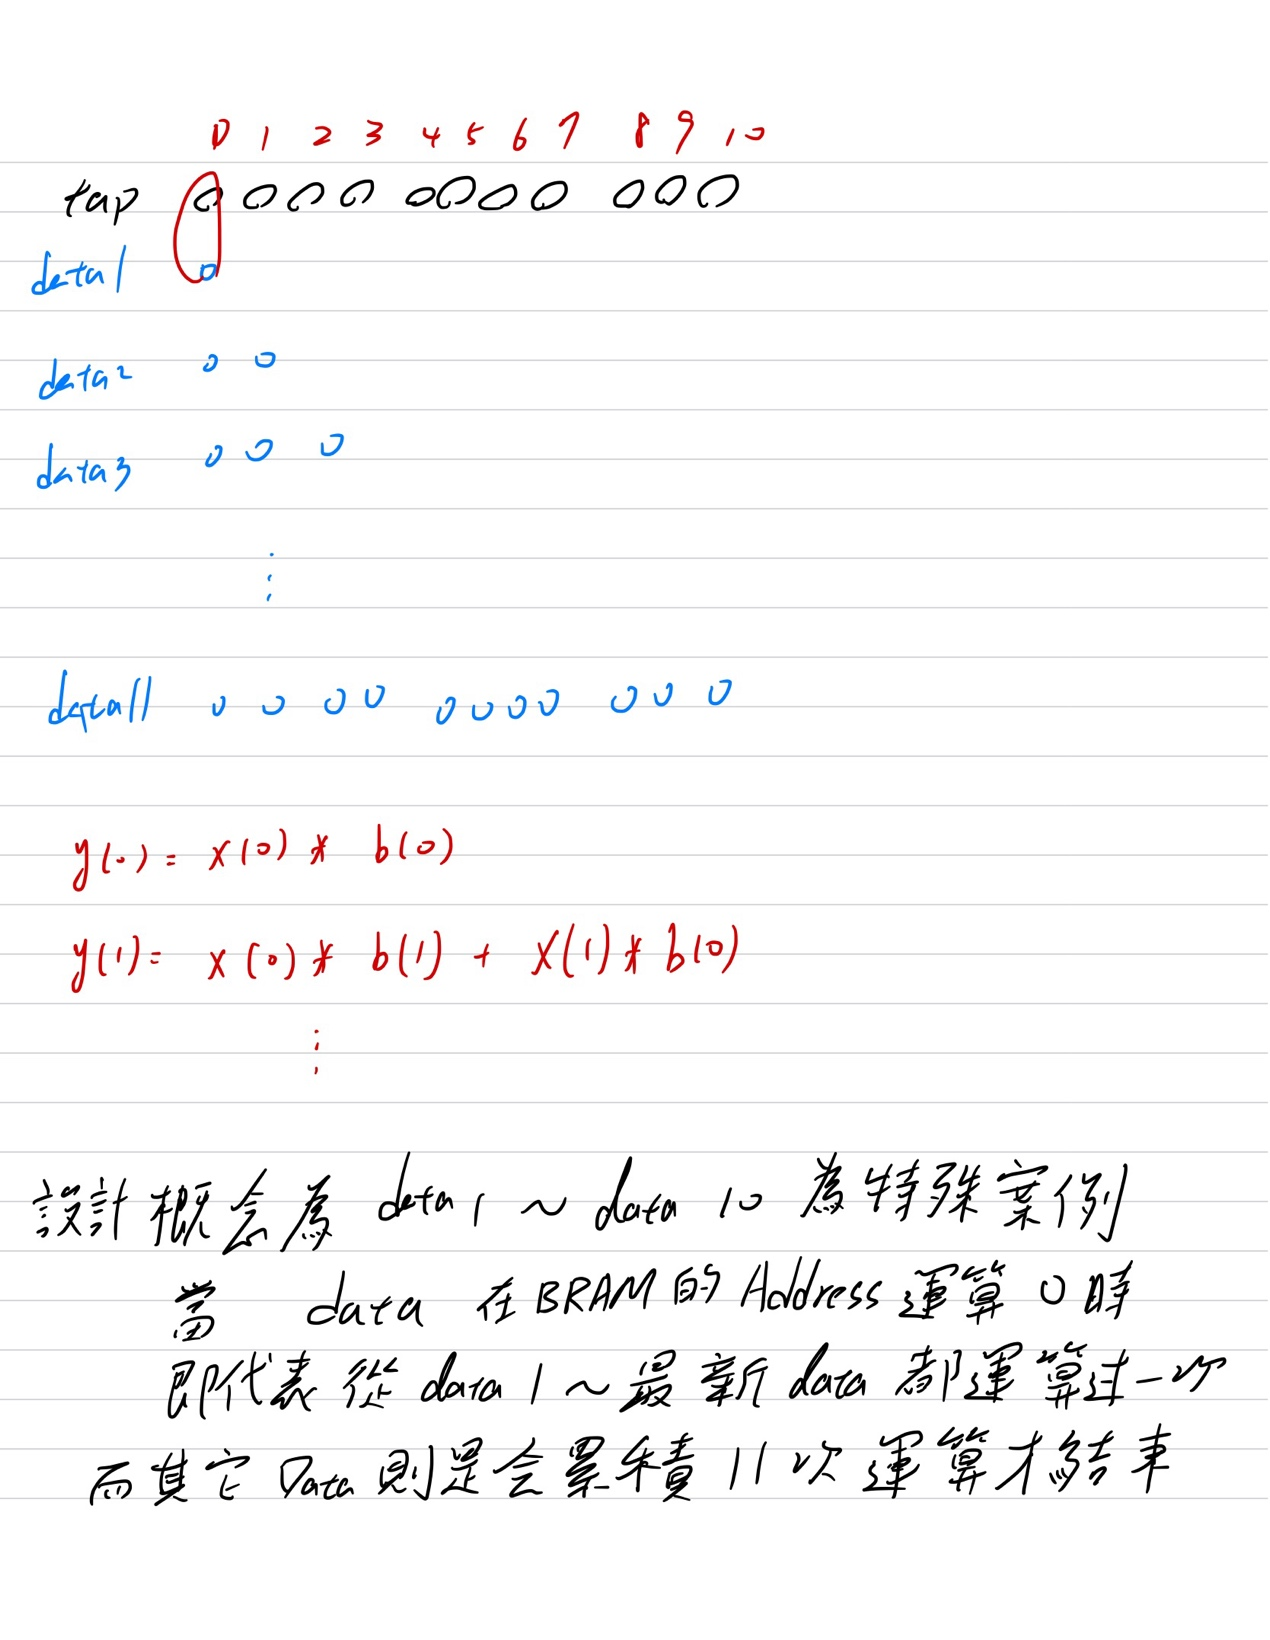 0 1 2 3 4 5 6 7 8 9 10
tap 0 0 0 0 0 0 0 0 0 0 0
data1 0
data2 0 0
data3 0 0 0
⋮
data11 0 0 0 0 0 0 0 0 0 0 0
y(0) = x(0) * b(0)
y(1) = x(0) * b(1) + x(1) * b(0)
⋮
設計概念為 data1 ~ data 10 為特殊案例
當 data 在BRAM的 Address運算 0 時
即代表從 data 1 ~ 最新 data 都運算过一次
而其它 Data 則是会累積 11 次運算才結束